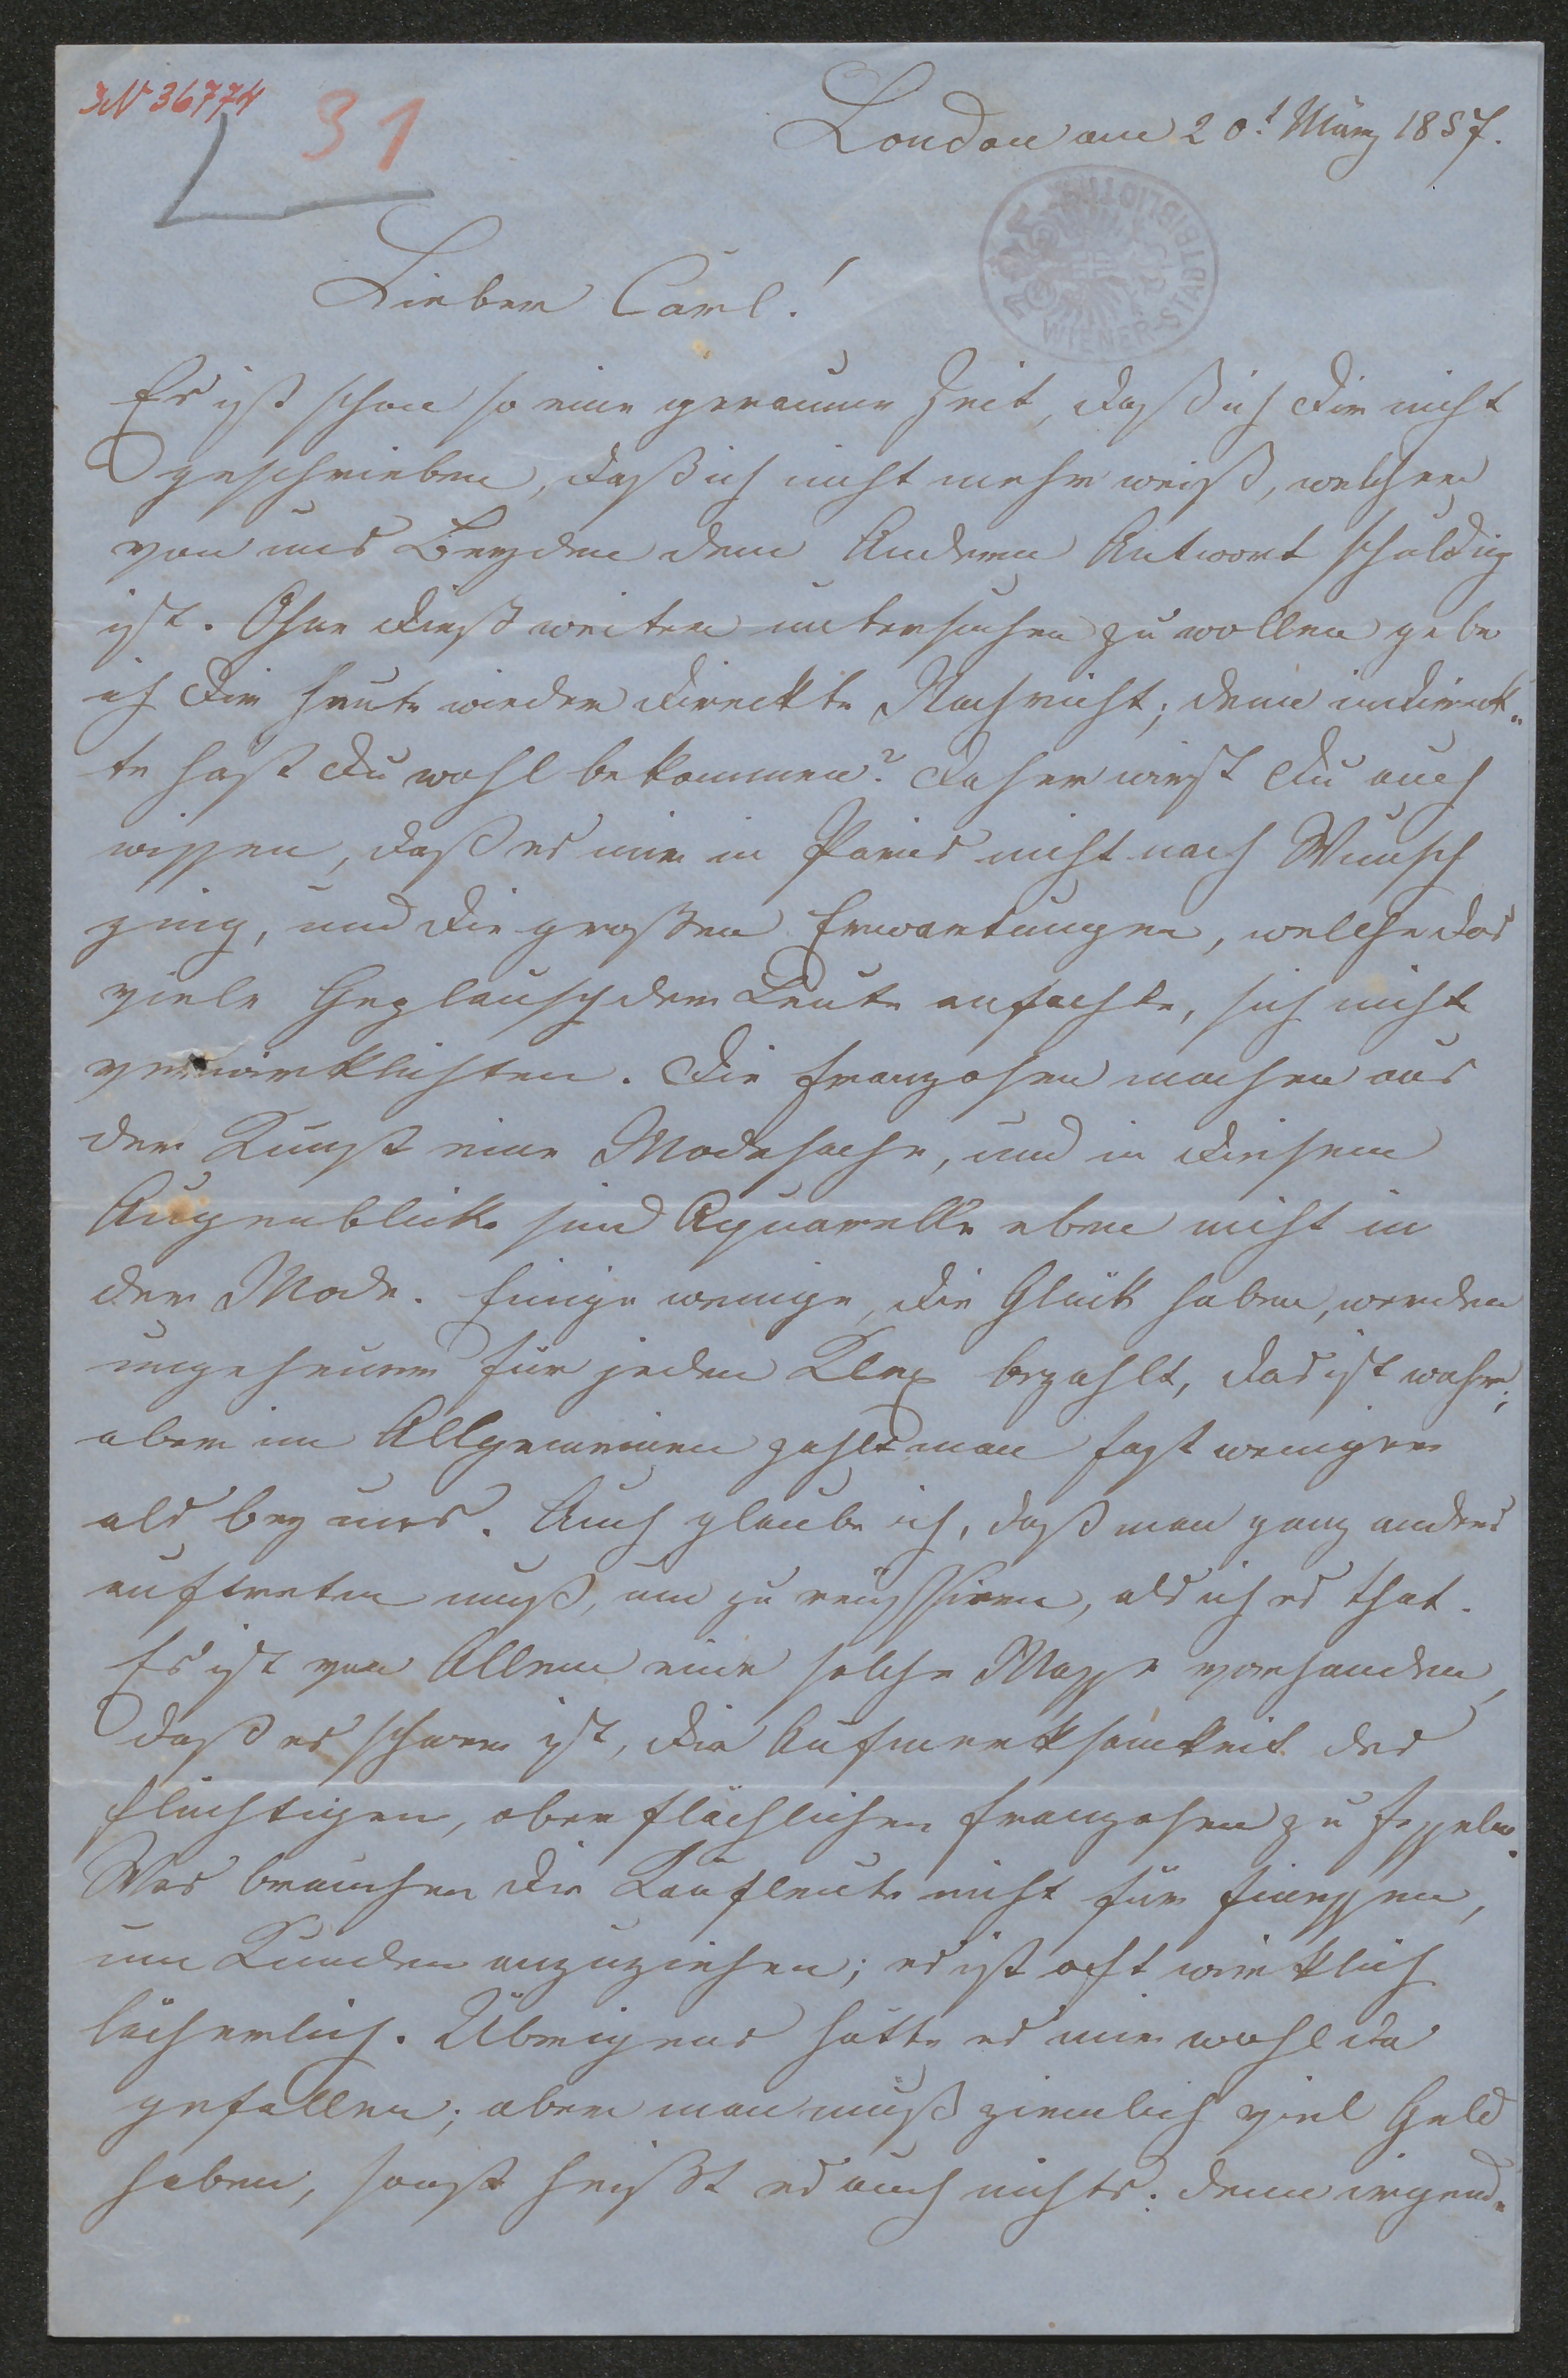 JN 36774
31
London am 20t März 1857.
WIENER-STADTBIBLIOTHEK
Lieber Carl!
Es ist schon so eine geraume Zeit, daß ich Dir nicht
geschrieben, daß ich nicht mehr weiß, welcher
von uns Beyden dem Andern Antwort schuldig
ist. Ohne dieß weiter untersuchen zu wollen gebe
ich Dir heute wieder direckte Nachricht; denn indireck„
te hast Du wohl bekommen? Daher wirst Du auch
wissen, daß es mir in Paris nicht nach Wunsch
ging, und die großen Erwartungen, welche das
viele Geplausch der Leute anfachte, sich nicht
verwirklichten. Die Franzosen machen aus
der Kunst eine Modesache, und in diesem
Augenblicke sind Aquarelle eben nicht in
der Mode. Einige wenige, die Glück haben, werden
ungeheuer für jeden Klex bezahlt, das ist wahr;
aber im Allgemeinen zahlt man fast weniger
als bey uns. Auch glaube ich, daß man ganz anders
auftreten muß, um zu reüssiren, als ich es that.
Es ist von Allem eine solche Masse vorhanden,
daß es schwer ist, die Aufmerksamkeit der
flüchtigen, oberflächlichen Franzosen zu fesseln.
Was brauchen die Kaufleute nicht für Finessen,
um Kunden anzuziehen; es ist oft wirklich
lächerlich. Übrigens hätte es mir wohl da
gefallen; aber man muß ziemlich viel Geld
haben, sonst heißt es auch nichts; denn irgend„